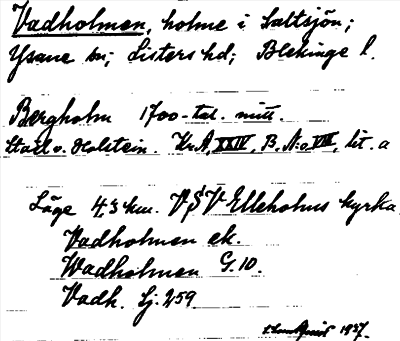 Vadholmen, holme i Saltsjön;
Ysane sn; Listers hd; Blekinge l.
Bergholm 1700-tal. mitt.
Stael v. Holstein. Kr.A, XXIV, B. N:o VIII, lit. a
Läge 4,3 km. VSV Elleholms kyrka
Vadholmen ek.
Wadholmen G. 10.
Vadh. Sj. 259
1937.